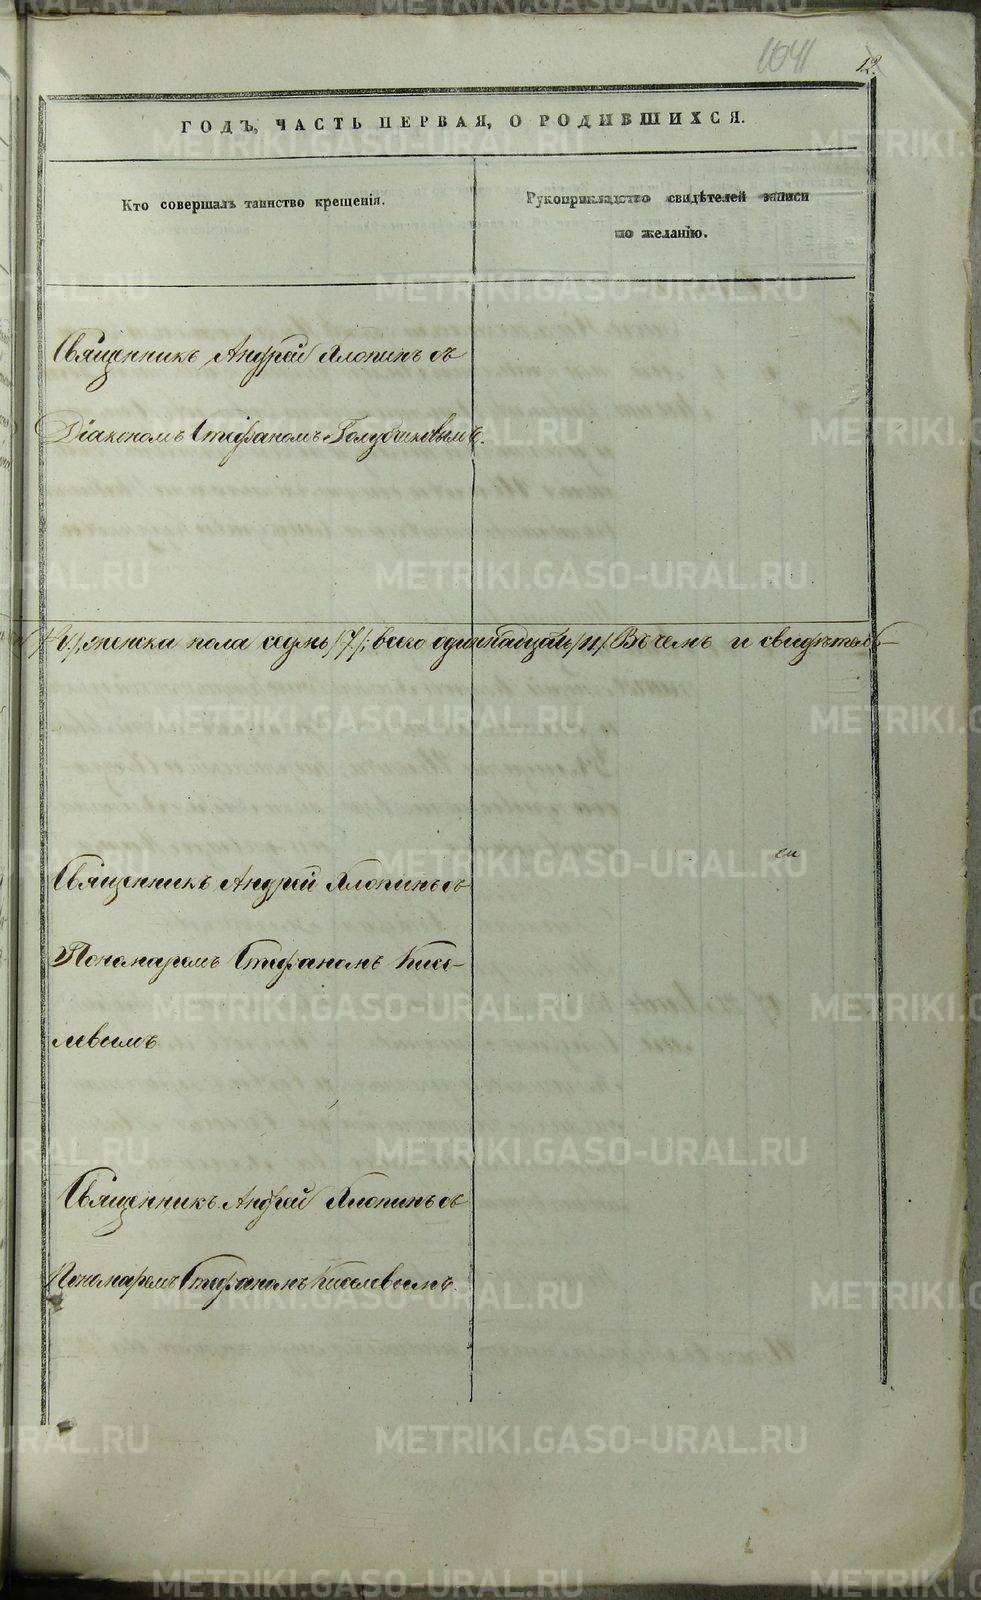 1041
12.
ГОДЪ, ЧАСТЬ ПЕРВАЯ, О РОДИВШИХСЯ.
Кто совершалъ таинство крещенія.
Рукоприкладство свидѣтелей записи
по желанію.
Священникъ Андрей Хлопинъ съ
Діакономъ Стефаномъ Голубчиковымъ.
/4/, женска пола седмь /7/; всего одиннадцать /11/. Въ чемъ и свидѣтель-
Священникъ Андрей Хлопинъ съ
Пономаремъ Стефаномъ Кисе-
левымъ
Священникъ Андрей Хлопинъ съ
Пономаремъ Стефаномъ Киселевымъ.
METRIKI.GASO-URAL.RU